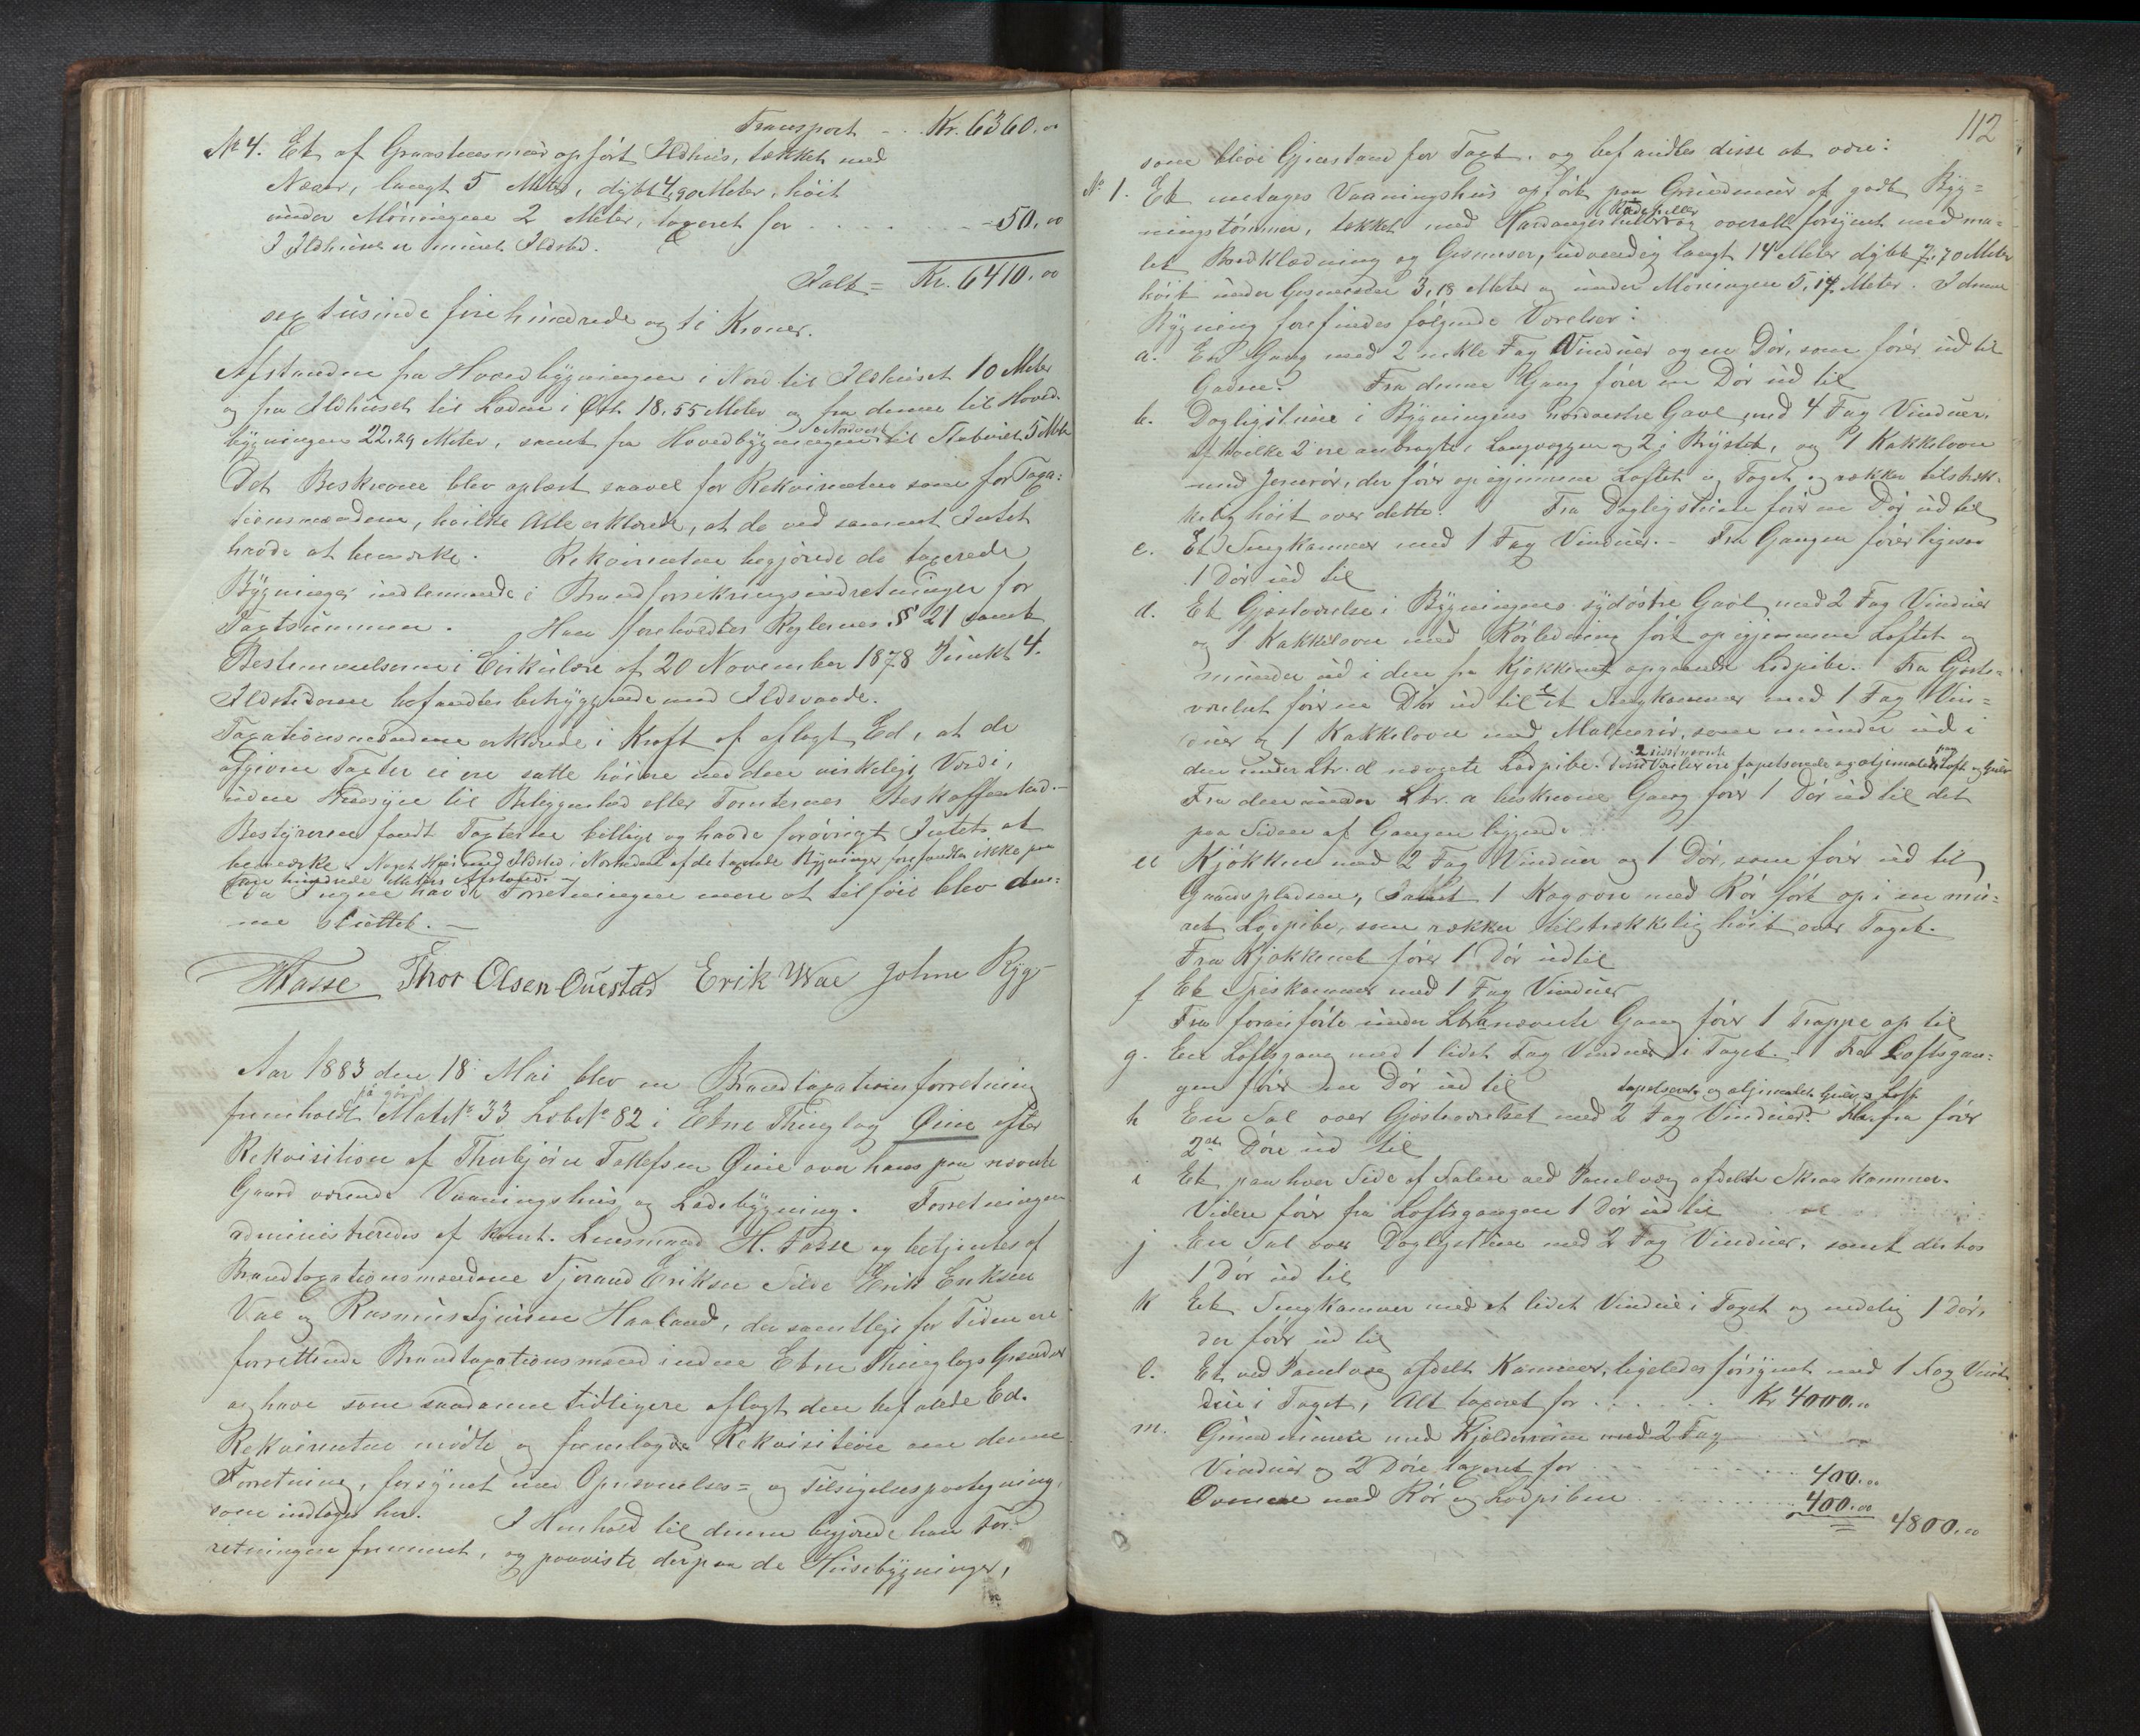 Transport - . . Kr. 6360.00
No 4. Et af Graasteensmuur opført Ildhus, tækket med
Næver, langt 5 Meter, dybt 4,90 Meter, høit
under Møningen 2 Meter, taxeret for . . . . . . - 50.00
I Ildhuset er muret Ildsted.
Ialt = Kr. 6410.00
sex tusinde fire hundrede og ti Kroner.
Afstanden fra Hovedbygningen i Nord til Ildhuset 10 Meter
og fra Ildhuset til Laden i Øst 18,55 Meter og fra denne til Hoved-
bygningen 22,29 Meter, samt fra Hovedbygningen i Nordvest til Staburet 5 Meter
Det Beskrevne blev oplæst saavel for Rekvirenten som for Taxa-
tionsmændene, hvilke Alle erklærede, at de ved samme Intet
havde at bemærke. Rekvirenten begjærede de taxerede
Bygninger indlemmede i Brandforsikringsindretningen for
Taxtsummen. Han foreholdtes Reglernes § 21 samt
Bestemmelserne i Cirkulære af 20 November 1878 Punkt 4.
Ildstederne befandtes betryggende mod Ildsvaade.
Taxationsmændene erklærede i Kraft af aflagt Ed, at de
afgivne Taxter ei ere satte høiere end den virkelige Værdi,
uden Hensyn til Beliggenhed eller Tomternes Beskaffenhed. -
Bestyreren fandt Taxterne billige og havde forøvrigt Intet at
bemærke. Noget Huus med Ildsted i Nærheden af de taxerede Bygninger forefandtes ikke paa
hundrede Meters Afstand. -
Da Ingen havde Forretningen mere at tilføie blev den-
ne sluttet. -
HTasse Thor Olsen Øuestad Erik Wae Johne Ryg-
Aar 1883 den 18 Mai blev en Brandtaxationsforretning
fremholdt på gaard Matr No 33 Løbe No 82 i Etne Thinglag Øine efter
Rekvisition af Thorbjørn Tollefsen Øine over hans paa nævnte
Gaard værende Vaaningshus og Ladebygning. Forretningen
administreredes af Const. Lensmand H. Tasse og betjentes af
Brandtaxationsmændene Tjerand Eriksen Silde Erik Eriksen
Vae og Rasmus Haaland, der samtlige for Tiden ere
forrettende Brandtaxationsmænd inden Etne Thinglags Grændser
og have som saadanne tidligere aflagt den befalede Ed.
Rekvirenten mødte og fremlagde Rekvisition om denne
Forretning, forsynet med Opnævnelses= og Tilsigelsespaategning,
som indtages her. I Henhold til denne begjærede han For-
retningen fremmet, og paaviste derpaa de Husebygninger,
112
som blive Gjenstand for Taxt, og befandtes disse at være:
No 1. Et enetages Vaaningshus opført paa Grundmuur af godt Byg=
ningstømmer, tækket med Hardangerheller og overalt forsynet med ma=
let Bordklædning og Gesimser, udvendig langt 14 Meter dybt 7,70 Meter
høit under Gesimsen 3,18 Meter og under Møningen 5,14 Meter. I denne
Bygning forefindes følgende Værelser:
a. En Gang med 2 enkle Fag Vinduer og en Dør, som fører ud til
Gaden. Fra denne Gang fører en Dør ud til
b. Dagligstue i Bygningens nordvestre Gavl med 4 Fag Vinduer,
af hvilke 2 ere anbragte i Langvæggen og 2 i Brystet, og 1 Kakkelovn
med Jernrør, der fører op igjennem Loftet og Taget og rækker tilstræk-
kelig høit over dette. Fra Dagligstuen fører en Dør ud til
c. Et Sengkammer med 1 Fag Vinduer. - Fra Gangen fører ligesaa
1 Dør ud til
d. Et Gjæsteværelse i Bygningens sydøstre Gavl med 2 Fag Vinduer
og 1 Kakkelovn med Rørledning ført op igjennem Loftet og
munder ud i den fra Kjøkkenet opgaaende Lodpibe. Fra Gjæste=
værelset fører en Dør ud til et Sengkammer med 1 Fag Vin=
duer og 1 Kakkelovn med Malmrør, som munder ud i
den under Ltr. d nævnte Lodpibe. Disse 2 sidstnævnte Værelser ere tapetserede og oljemalede paa Loft og Gulv
Fra den under Ltr. a beskrevne Gang fører 1 Dør ud til det
paa Siden af Gangen liggende
e Kjøkken med 2 Fag Vinduer og 1 Dør, som fører ud til
Gaardspladsen, samt 1 Kogovn med Rør ført op i en mu=
ret Lodpibe, som rækker tilstrækkelig høit over Taget.
Fra Kjøkkenet fører 1 Dør ud til
f Et Spiskammer med 1 Fag Vinduer
Fra foranførte under Ltr a nævnte Gang fører 1 Trappe op til
g. En Loftsgang med 1 lidet Fag Vinduer i Taget. - Fra Loftsgan=
gen fører en Dør ud til
h En Sal over Gjæsteværelset med 2 Fag Vinduer tapetseret og oljemalet Gulv & Loft. Herfra fører
2de Døre ud til
i Et paa hver Side af Salen ved Panelvæg afdelte Skraakammer.
Videre fører fra Loftsgangen 1 Dør ud til
j En Sal over Dagligstuen med 2 Fag Vinduer, samt derhos
1 Dør ud til
k Et Sengkammer med et lidet Vindue i Taget og nedelig 1 Dør,
der fører ud til
l. Et ved Panelvæg afdelt Kammer, ligeledes forsynet med 1 Fag Vin-
due i Taget, Alt taxeret for . . . . . . Kr 4000.00
m. Grundmuren med Kjælderrum med 2 Fag
Vinduer og 2 Døre taxeret for . . . . . . 400.00
Ovnene med Rør og Lodpiben . . . . . . 400.00
4800.00